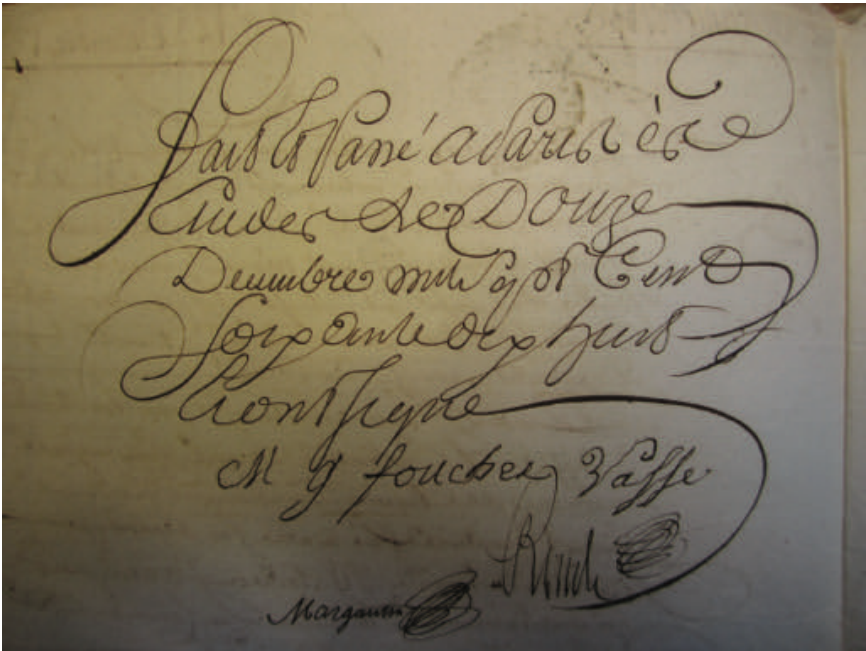 fait et Passé a Paris ès
Etudes Le Douze
Decembre mil sept Cent
Soixante dix huit
Et ont signé
M g foucher Vasse
Margantin